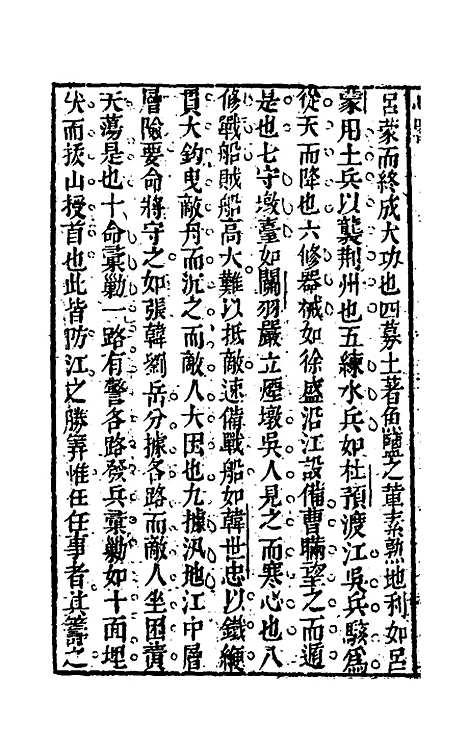 呂蒙而終成大功也四募土著魚鹽之輩素熟地利如呂
蒙用土兵以襲荆州也五練水兵如杜預渡江吳兵駭爲
從天而降也六修器械如徐盛沿江設備曹瞞望之而遁
是也七守墩臺如關羽嚴立煙墩吳人見之而寒心也八
修戰船賊船高大難以抵敵速備戰船如韓世忠以鐵綆
貫大鈎曳敵舟而沉之而敵人大困也九據汛地江中層
層險要命將守之如張韓劉岳分據各路而敵人坐困黄
天蕩是也十命彙勦一路有警各路發兵彙勦如十面埋
伏而拔山授首也此皆防江之勝筭惟在任事者其籌之